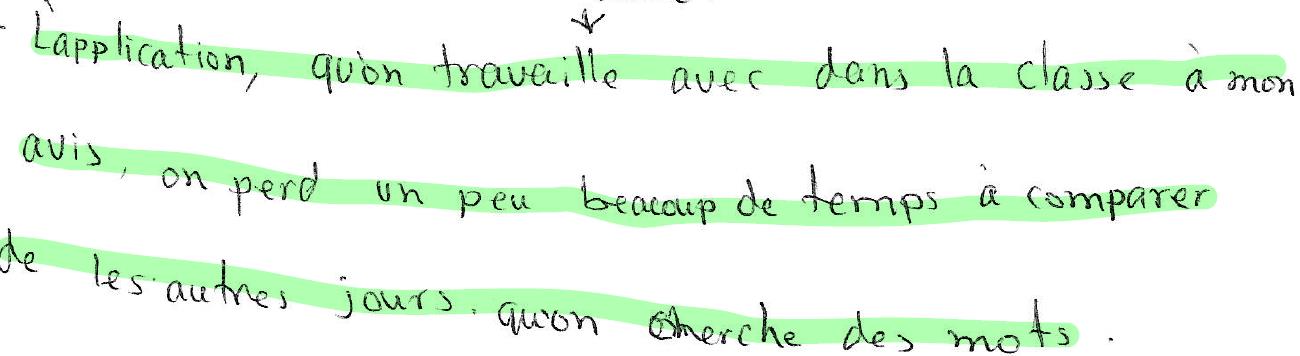 - L'application, qu'on travaille avec dans la classe à mon
avis, on perd un peu beacoup de temps à comparer
de les autres jours. qu'on cherche des mots.